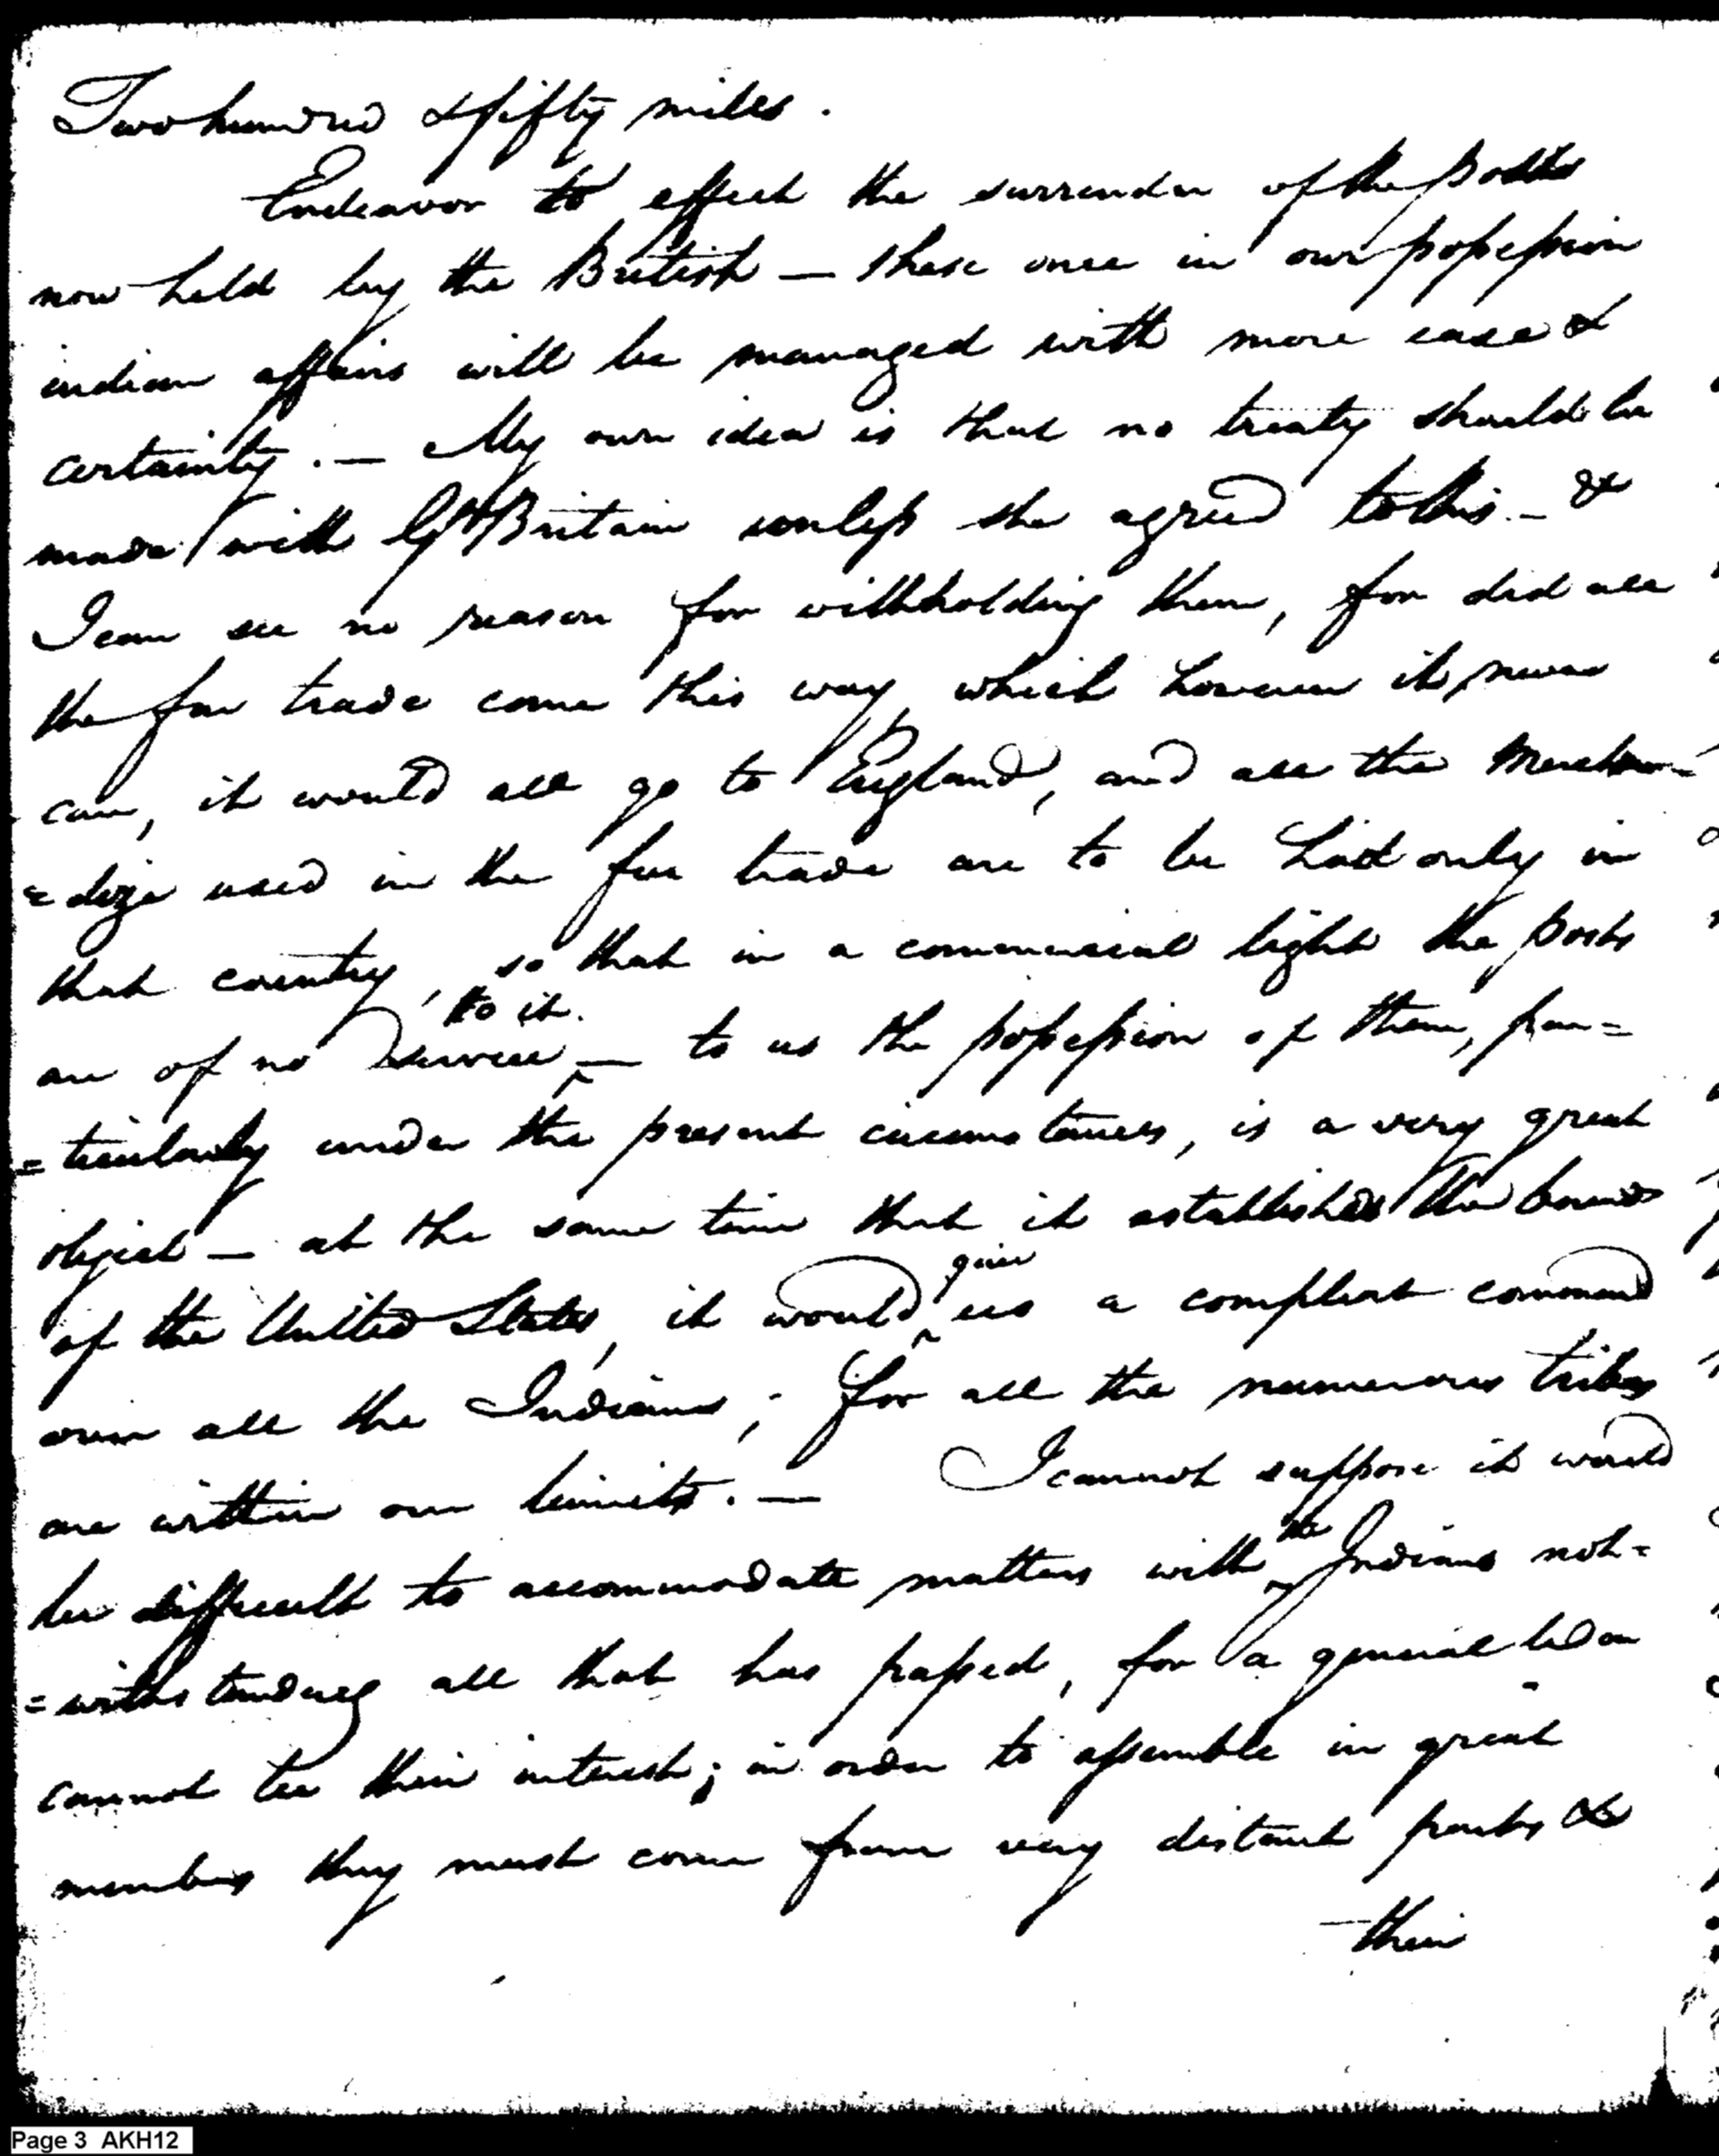 Two hundred & fifty miles.
Endeavor to effect the surrender of the posts
now held by the British — these once in our possession
indian affairs will be managed with more ease &
certainty. — My own idea is that no treaty should be
made with Gt Britain unless she agreed to this. — &
I can see no reason for withholding them, for did all
the fur trade come this way which however it never
can, it would all go to England, and all the Merchan=
=dize used in the fur trade are to be had only in
that country, so that in a commercial light the posts
to it.
are of no service — to us the possession of them, par=
=ticularly under the present circumstances, is a very great
object — at the same time that it established the bounds
give
of the United States, it would us a compleat command
over all the Indians; for all the numerous tribes
are within our limits. — I cannot suppose it would
the
be difficult to accommodate matters with Indians not=
=withstanding all that has passed, for a general
cannot be their interest; in order to assemble in great
numbers they must come from very distant parts &
their
Page 3 AKH12